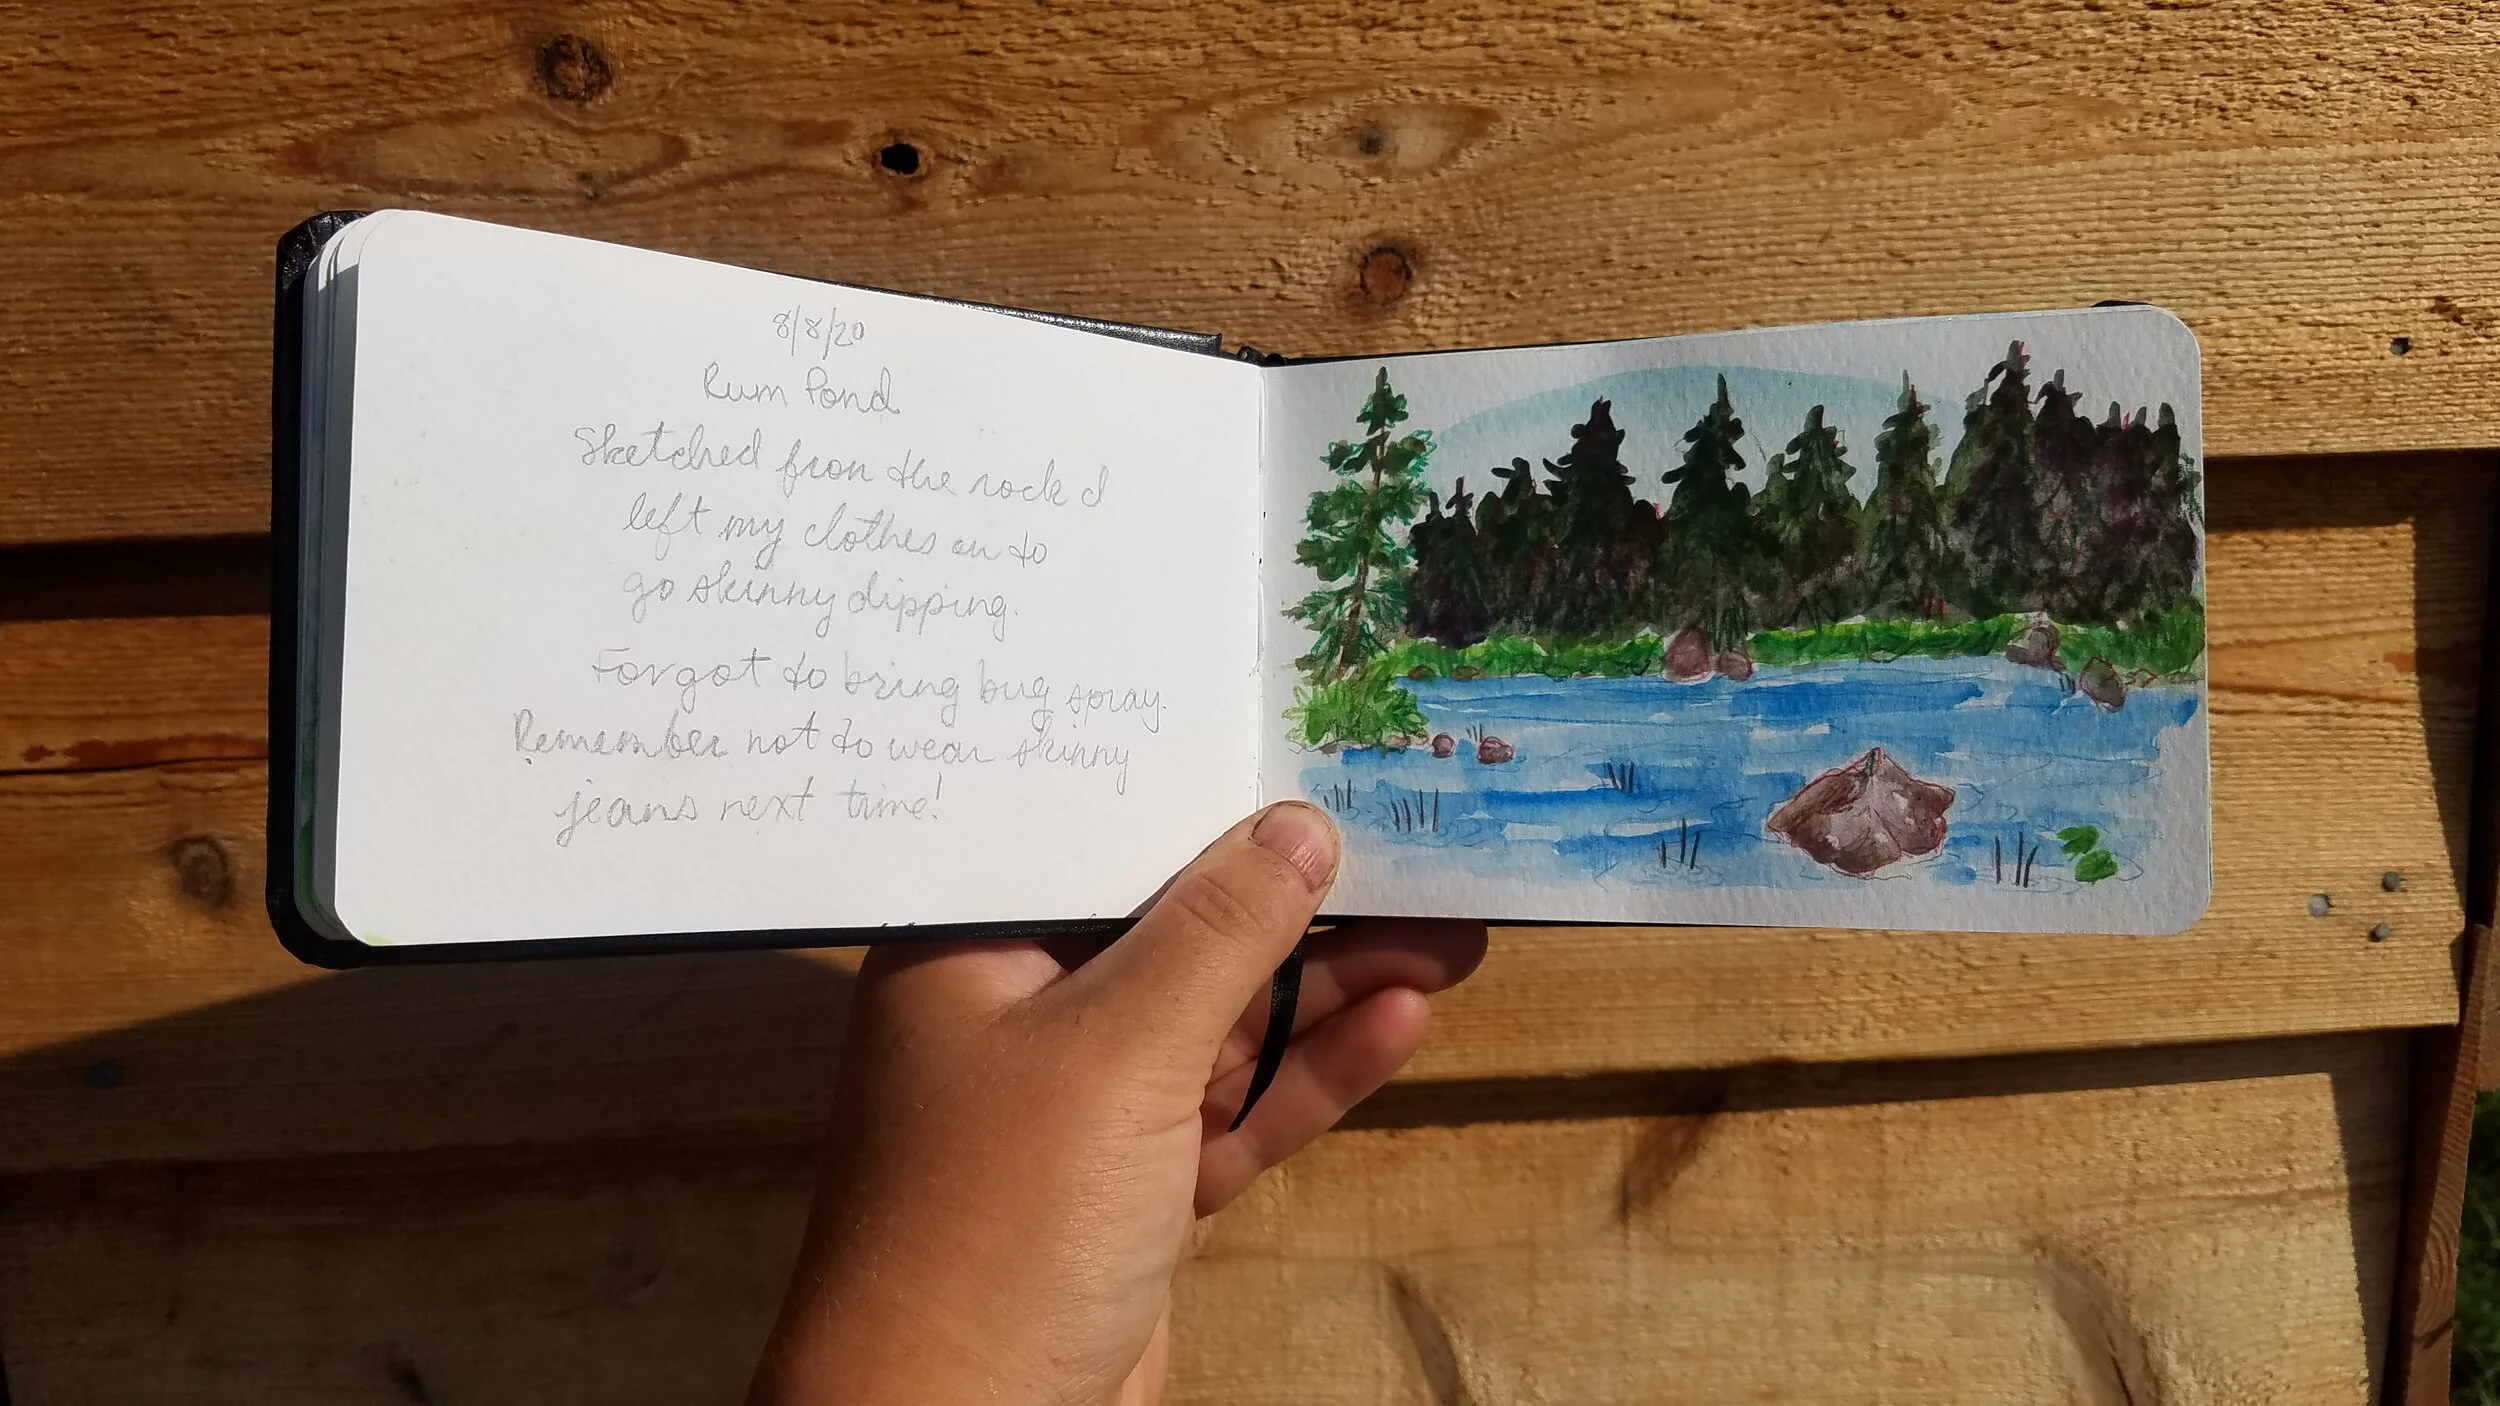 8/8/20
Rum Pond
Sketched from the rock I
left my clothes on to
go skinny dipping.
Forgot to bring bug spray.
Remember not to wear skinny
jeans next time!